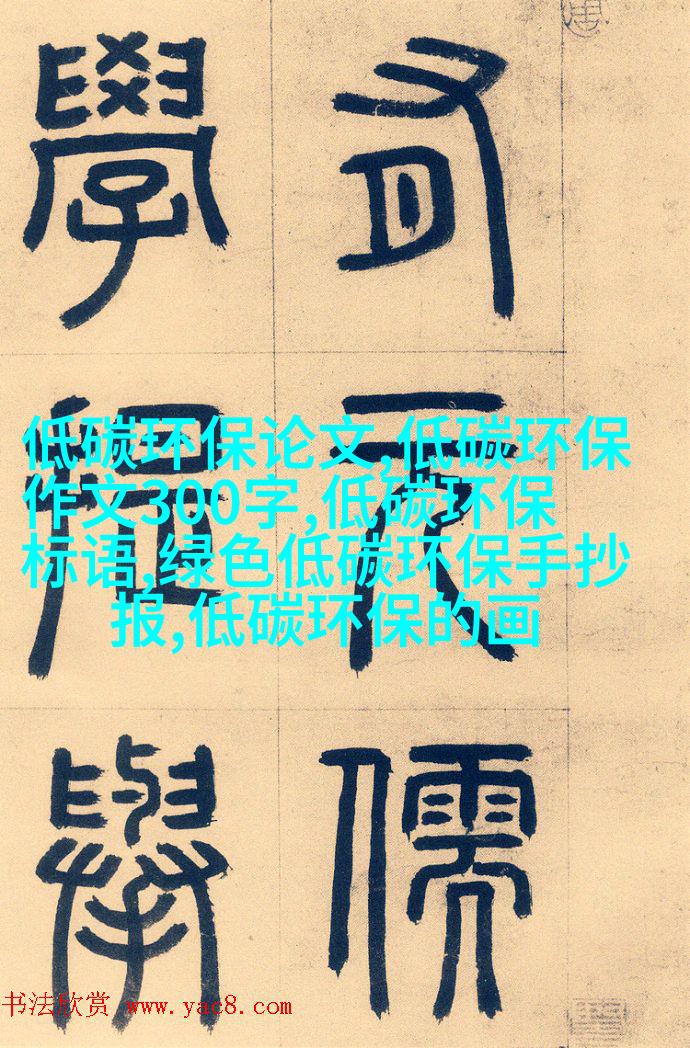 有元儒
學提舉
低碳环保论文,低碳环保
作文300字,低碳环保
标语,绿色低碳环保手抄
报,低碳环保的画
书法欣赏 www.yac8.com